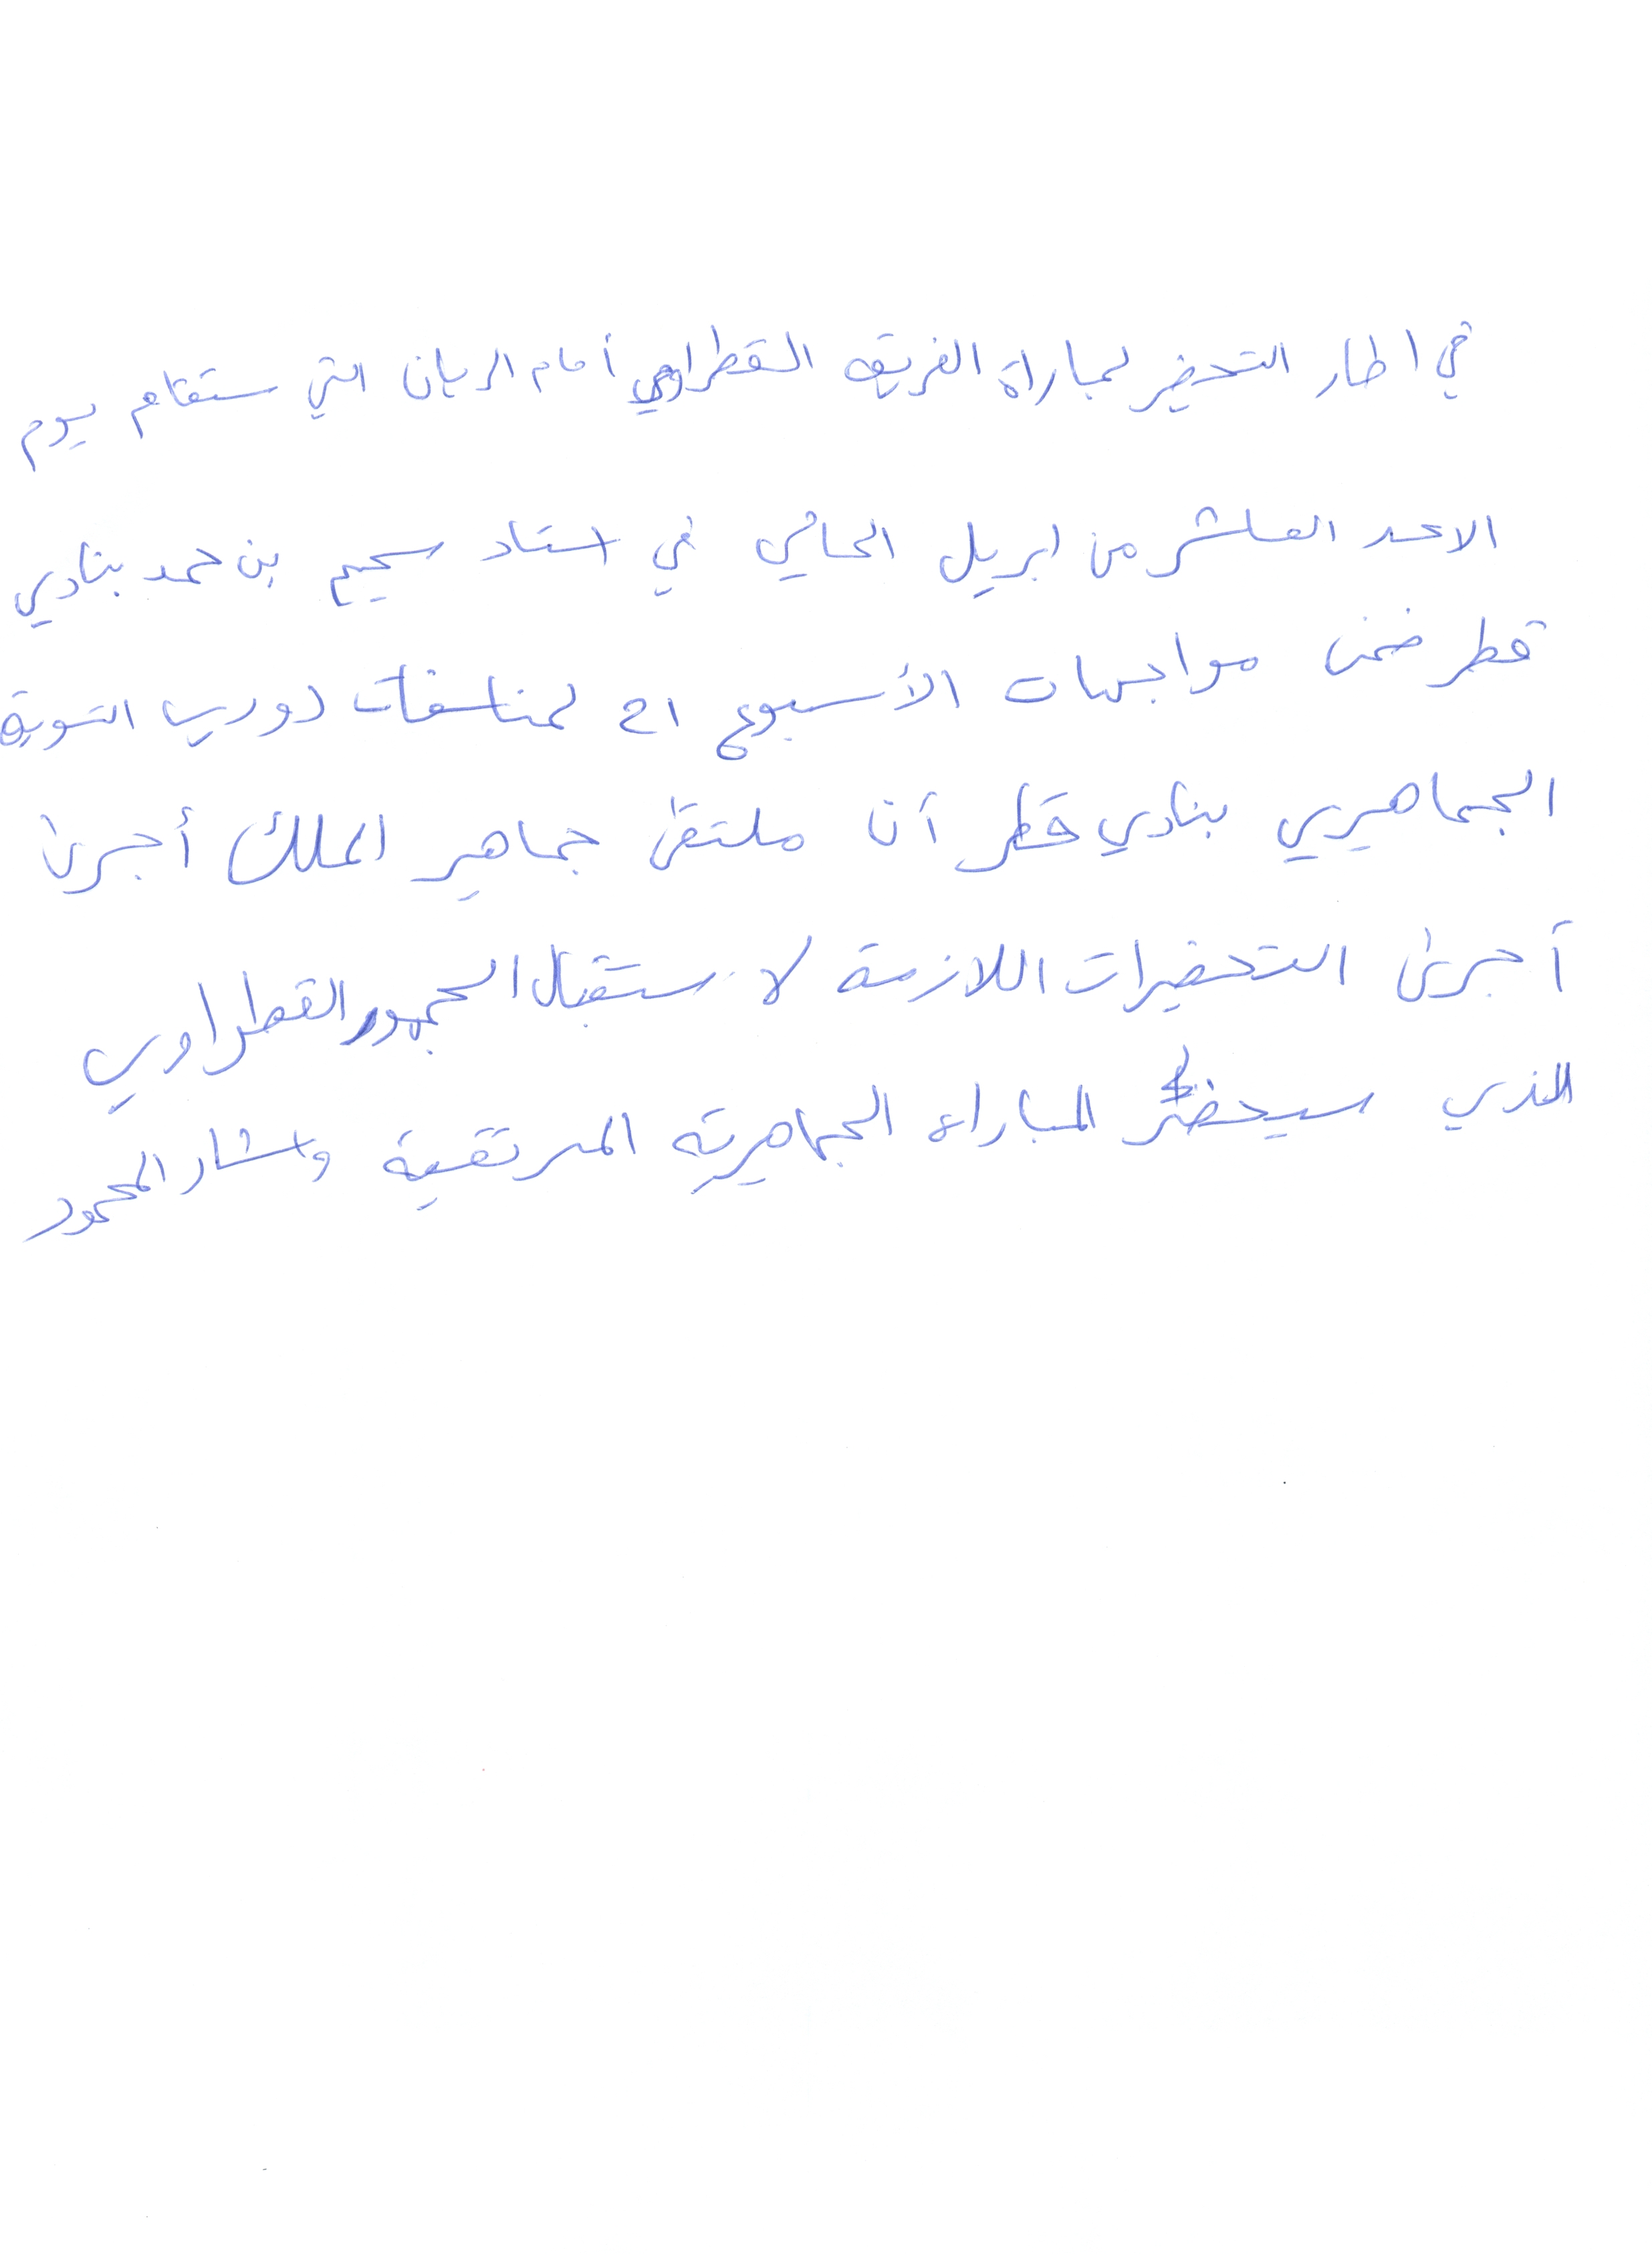 في اطار التحضير لمباراة الفريق القطراوي أمام الريان التي ستقام يوم
الاحد العاشر من ابريل الحالي في استاد سحيم بن حمد بنادي
قطر ضمن مواجهات الأسبوع 21 لمنافسات دوري التسويق
الجماهيري بنادي قطر أن ملتقى جماهير الملك أجرى
أجرى التحضيرات اللازمة لاستقبال الجمهور القطراوي
الذي سيحضر المباراة الجماهيرية المرتقبة واشار المحمود